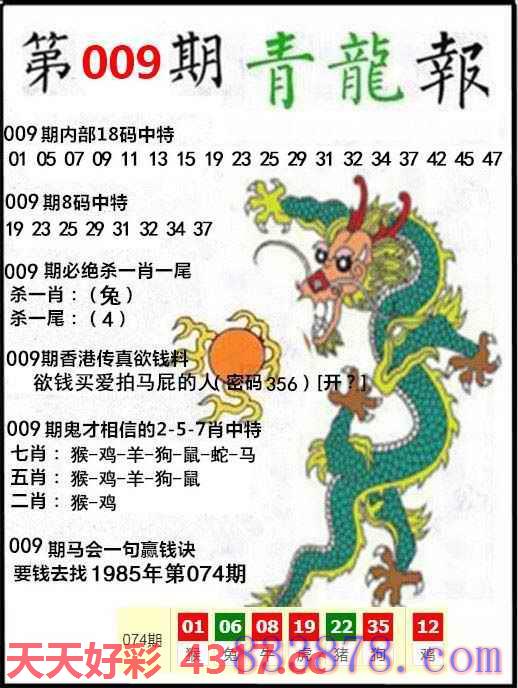 第009期青龍報
009期内部18码中特
01 05 07 09 11 13 15 19 23 25 29 31 32 34 37 42 45 47
009期8码中特
19 23 25 29 31 32 34 37
009期必绝杀一肖一尾
杀一肖：（兔）
杀一尾：（4）
009期香港传真欲钱料
欲钱买爱拍马屁的人(密码356)[开?]
009期鬼才相信的2-5-7肖中特
七肖：猴-鸡-羊-狗-鼠-蛇-马
五肖：猴-鸡-羊-狗-鼠
二肖：猴-鸡
009期马会一句赢钱诀
要钱去找1985年第074期
074期 01 06 08 19 22 35 12
猴 兔 牛 虎 猪 狗 鸡
天天好彩 4317.cc